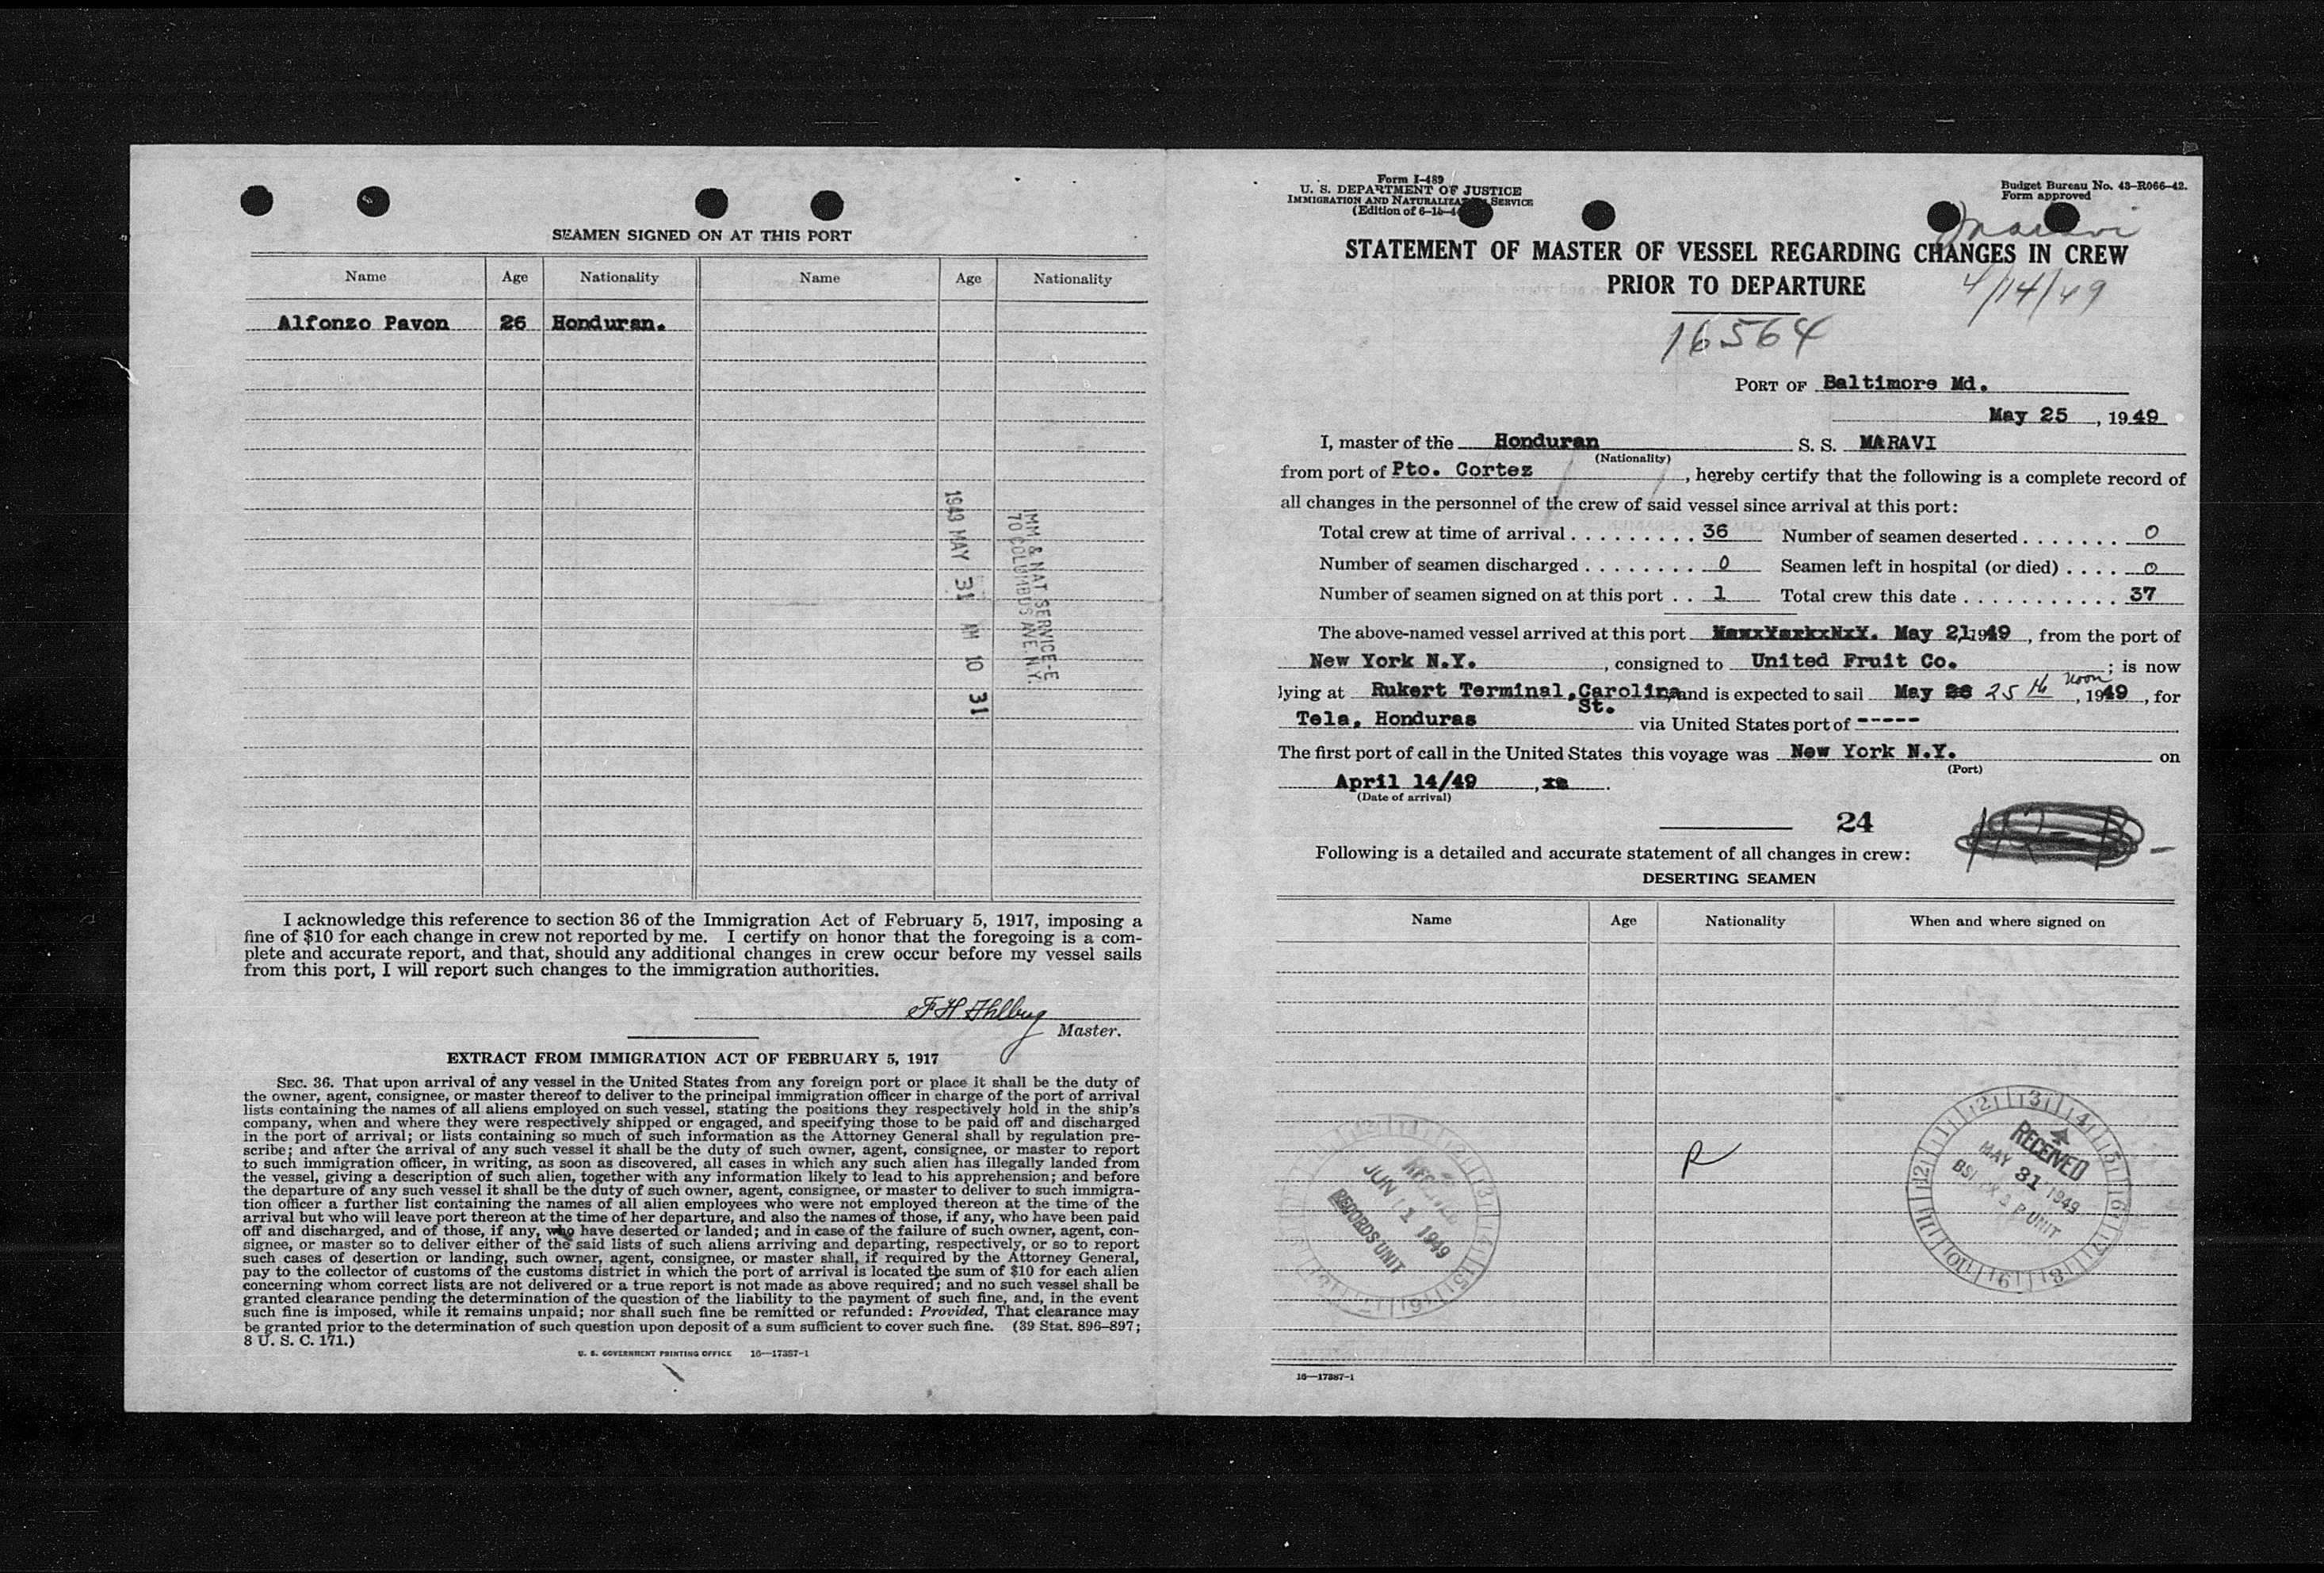 SEAMEN SIGNED ON AT THIS PORT
Name Age Nationality Name Age Nationality
Alfonzo Pavon 26 Honduran.
1949 MAY 31 AM 10 31
IMM & NAT SERVICE-E
70 COLUMBUS AVE. N.Y.
I acknowledge this reference to section 36 of the Immigration Act of February 5, 1917, imposing a
fine of $10 for each change in crew not reported by me. I certify on honor that the foregoing is a com-
plete and accurate report, and that, should any additional changes in crew occur before my vessel sails
from this port, I will report such changes to the immigration authorities.
Master.
EXTRACT FROM IMMIGRATION ACT OF FEBRUARY 5, 1917
SEC. 36. That upon arrival of any vessel in the United States from any foreign port or place it shall be the duty of
the owner, agent, consignee, or master thereof to deliver to the principal immigration officer in charge of the port of arrival
lists containing the names of all aliens employed on such vessel, stating the positions they respectively hold in the ship's
company, when and where they were respectively shipped or engaged, and specifying those to be paid off and discharged
in the port of arrival; or lists containing so much of such information as the Attorney General shall by regulation pre-
scribe; and after the arrival of any such vessel it shall be the duty of such owner, agent, consignee, or master to report
to such immigration officer, in writing, as soon as discovered, all cases in which any such alien has illegally landed from
the vessel, giving a description of such alien, together with any information likely to lead to his apprehension; and before
the departure of any such vessel it shall be the duty of such owner, agent, consignee, or master to deliver to such immigra-
tion officer a further list containing the names of all alien employees who were not employed thereon at the time of the
arrival but who will leave port thereon at the time of her departure, and also the names of those, if any, who have been paid
off and discharged, and of those, if any, who have deserted or landed; and in case of the failure of such owner, agent, con-
signee, or master so to deliver either of the said lists of such aliens arriving and departing, respectively, or so to report
such cases of desertion or landing, such owner, agent, consignee, or master shall, if required by the Attorney General,
pay to the collector of customs of the customs district in which the port of arrival is located the sum of $10 for each alien
concerning whom correct lists are not delivered or a true report is not made as above required; and no such vessel shall be
granted clearance pending the determination of the question of the liability to the payment of such fine, and, in the event
such fine is imposed, while it remains unpaid; nor shall such fine be remitted or refunded: Provided, That clearance may
be granted prior to the determination of such question upon deposit of a sum sufficient to cover such fine. (39 Stat. 896–897;
8 U. S. C. 171.)
U. S. GOVERNMENT PRINTING OFFICE 16—17387-1
Form I-489
U. S. DEPARTMENT OF JUSTICE
IMMIGRATION AND NATURALIZATION SERVICE
(Edition of 6-15-4
Budget Bureau No. 43-R066-42.
Form approved
Maravi
STATEMENT OF MASTER OF VESSEL REGARDING CHANGES IN CREW
PRIOR TO DEPARTURE
4/14/49
16564
PORT OF Baltimore Md.
May 25, 1949
I, master of the Honduran S. S. MARAVI
(Nationality)
from port of Pto. Cortez, hereby certify that the following is a complete record of
all changes in the personnel of the crew of said vessel since arrival at this port:
Total crew at time of arrival . . . . . . . . . 36 Number of seamen deserted . . . . . . . 0
Number of seamen discharged . . . . . . . . 0 Seamen left in hospital (or died) . . . . 0
Number of seamen signed on at this port . . 1 Total crew this date . . . . . . . . . . . 37
The above-named vessel arrived at this port May 21, 1949, from the port of
New York N.Y., consigned to United Fruit Co.; is now
lying at Rukert Terminal, Carolina St. and is expected to sail May 25th noon, 1949, for
Tela, Honduras via United States port of -----
The first port of call in the United States this voyage was New York N.Y. on
(Port)
April 14/49
(Date of arrival)
24
Following is a detailed and accurate statement of all changes in crew:
DESERTING SEAMEN
Name Age Nationality When and where signed on
R
RECEIVED
JUN 1 1949
RECORDS UNIT
RECEIVED
MAY 31 1949
16—17387-1